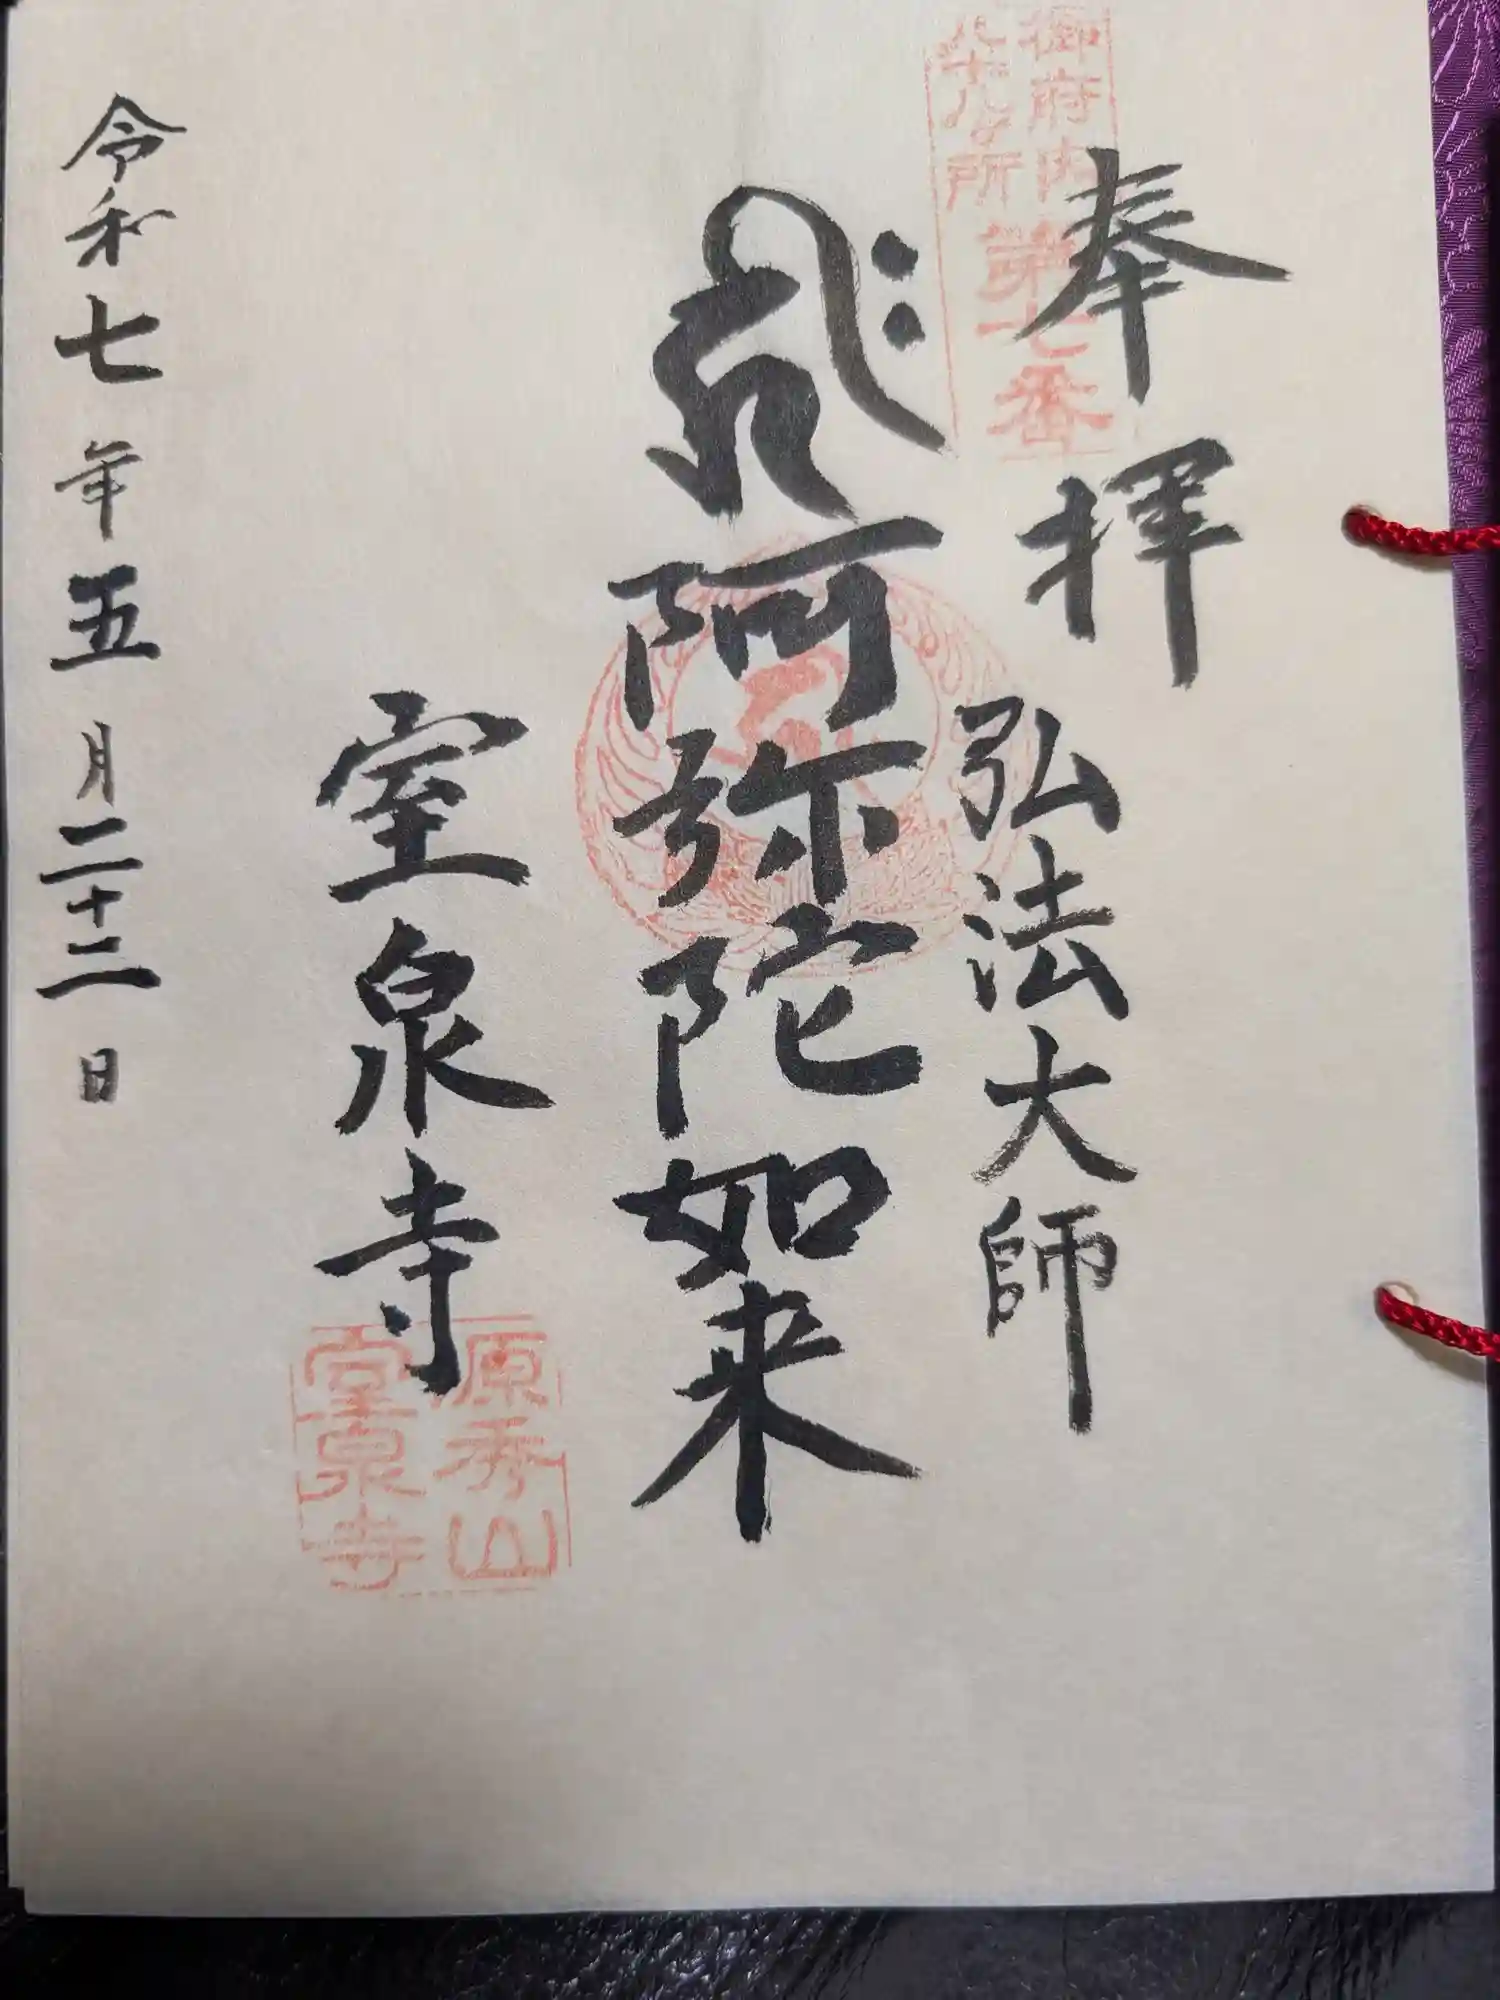 奉拝
御府内
八十八ヶ所
第七番
弘法大師
阿弥陀如来
室泉寺
源秀山
室泉寺
令和七年五月二十二日